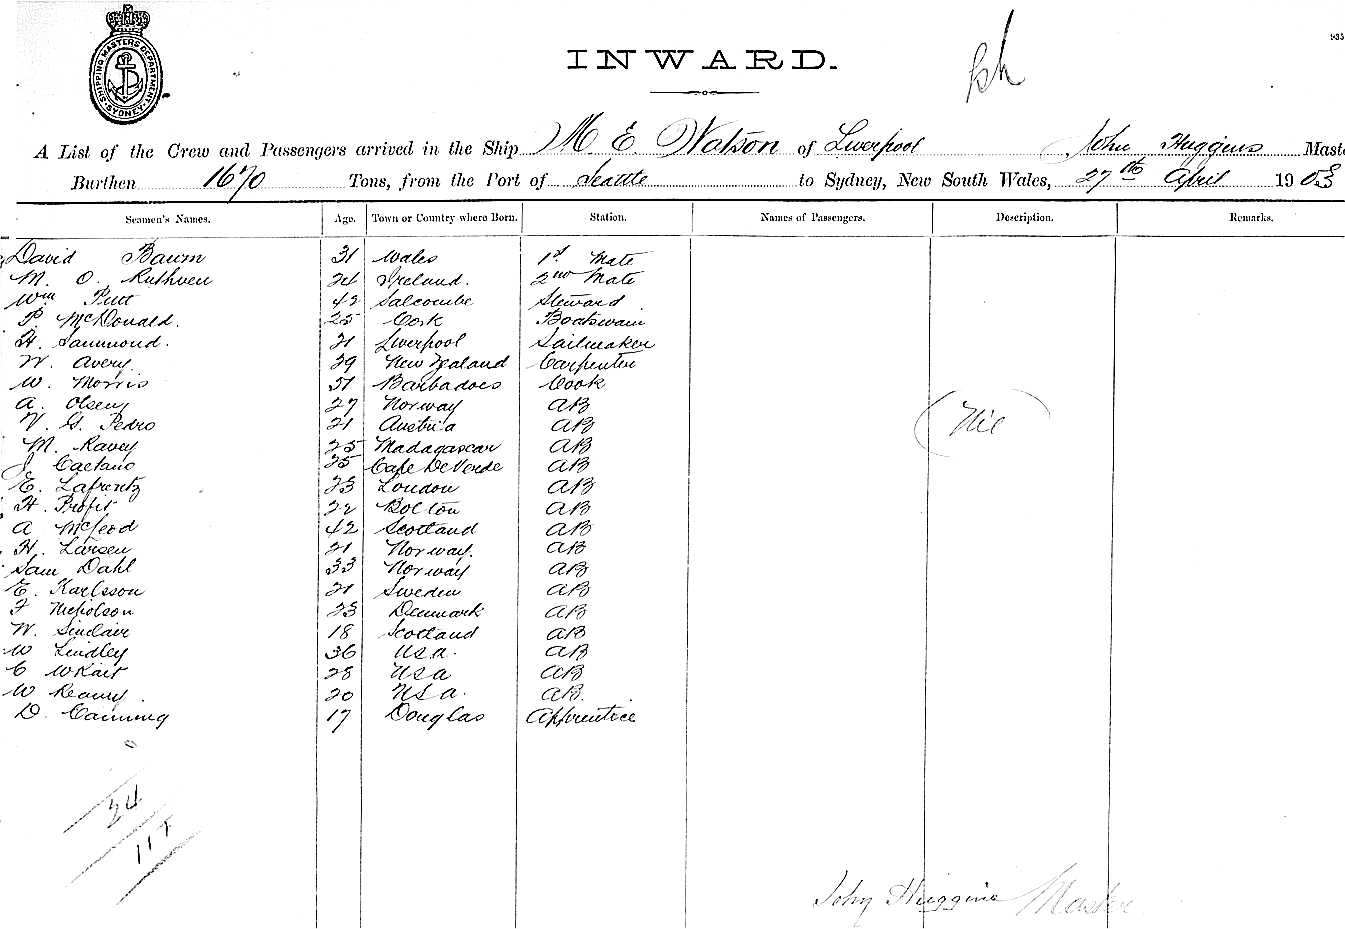 SHIPPING MASTERS DEPARTMENT SYDNEY
INWARD.
935
A List of the Crew and Passengers arrived in the Ship M. E. Watson of Liverpool John Huggins Maste
Burthen 1670 Tons, from the Port of Seattle to Sydney, New South Wales, 27th April 1903
Seamen's Names. Age. Town or Country where Born. Station. Names of Passengers. Description. Remarks.
David Baum 31 Wales 1st Mate
M. O. Ruthven 24 Ireland. 2nd Mate
Wm Putt 42 Salcombe Steward
P. McDonald. 25 Cork Boatswain
H. Hammond. 21 Liverpool Sailmaker
W. Avery. 29 New Zealand Carpenter
W. Morris 51 Barbadoes Cook
A. Olsen 27 Norway AB
V. G. Pedro 21 Austria AB
Nil
M. Ravey 25 Madagascar AB
J Caetano 25 Cape De Verde AB
E. Lafrentz 23 London AB
H. Profit 22 Bolton AB
A McLeod 42 Scotland AB
H. Larsen 21 Norway. AB
Sam Dahl 33 Norway AB
E. Karlsson 21 Sweden AB
F Nicholson 23 Denmark AB
W. Sinclair 18 Scotland AB
W Lindley 36 USA. AB
C 28 USA AB
W 20 USA. AB.
D. Canning 17 Douglas Apprentice
24
117
John Huggins Master